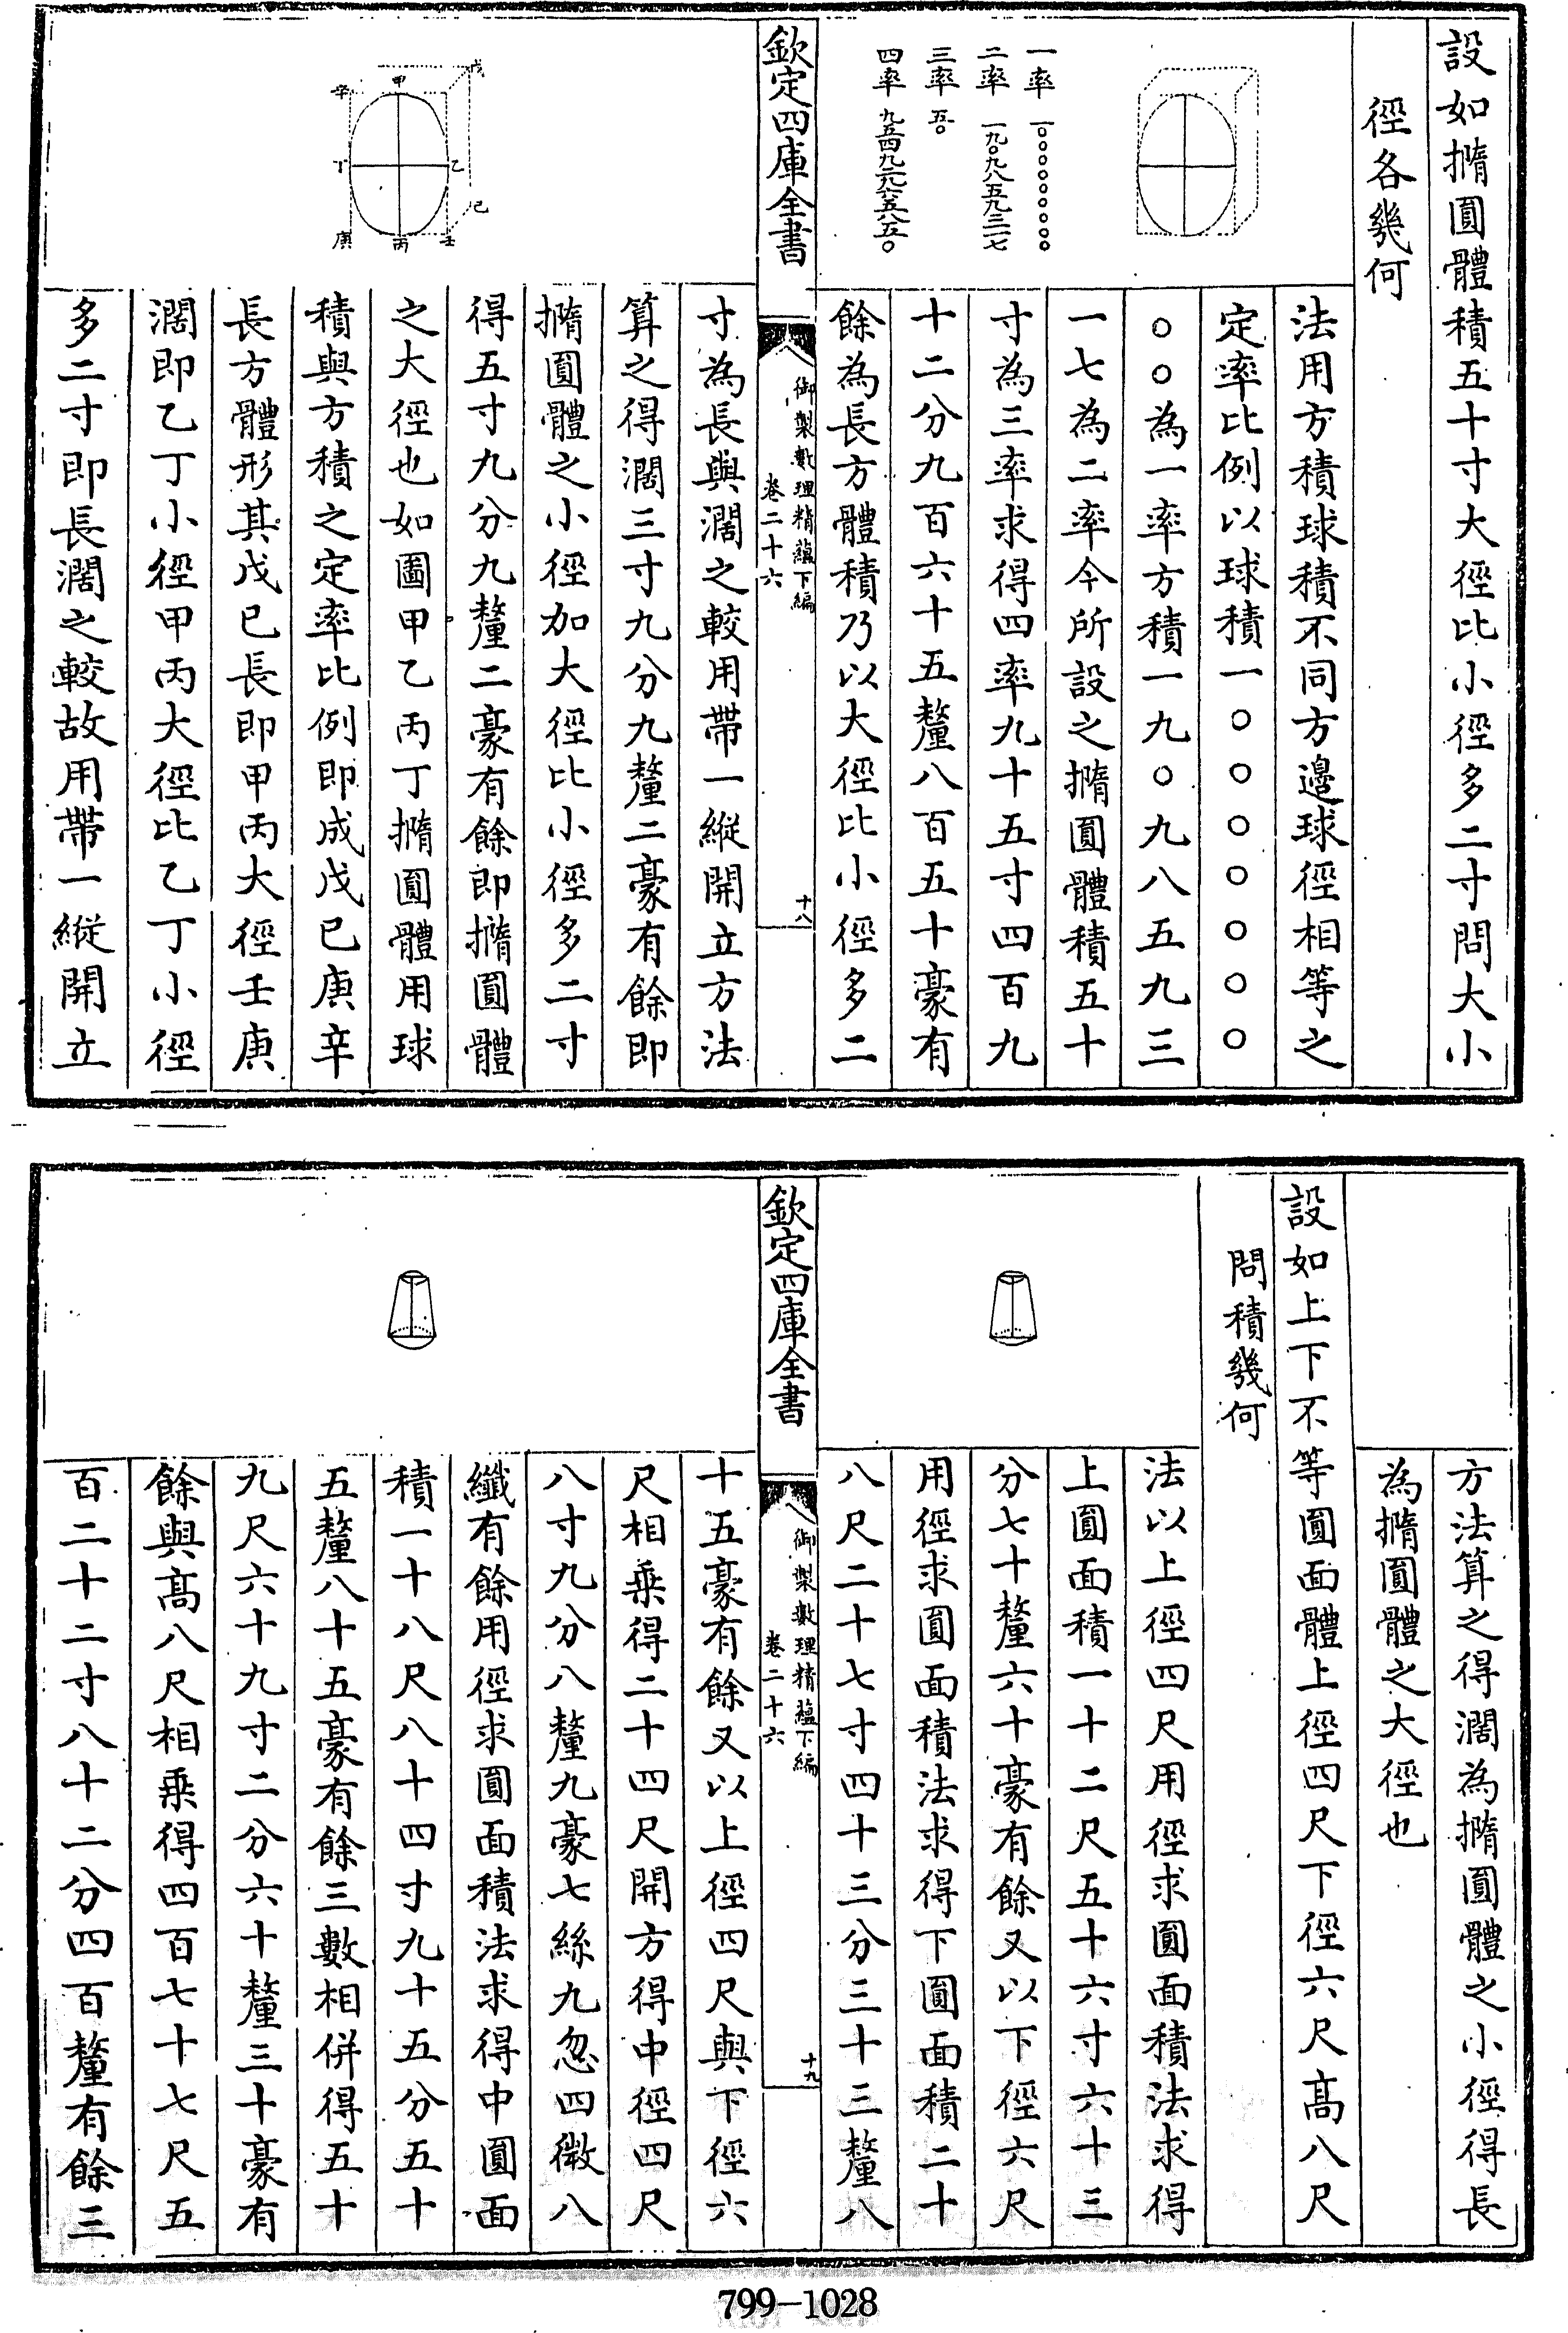 設如撱圓體積五十寸大徑比小徑多二寸問大小
徑各幾何
一率 一〇〇〇〇〇〇〇〇
二率 一九〇九八五九三一七
三率 五〇
四率
法用方積球積不同方邊球徑相等之
定率比例以球積一〇〇〇〇〇〇〇
〇〇為一率方積一九〇九八五九三
一七為二率今所設之撱圓體積五十
寸為三率求得四率九十五寸四百九
十二分九百六十五釐八百五十豪有
餘為長方體積乃以大徑比小徑多二
欽定四庫全書
御製數理精蘊下編
卷二十六
十八
甲
戊
辛
丁
乙
己
庚
丙
壬
寸為長與濶之較用帶一縱開立方法
算之得濶三寸九分九釐二豪有餘即
撱圓體之小徑加大徑比小徑多二寸
得五寸九分九釐二豪有餘即撱圓體
之大徑也如圖甲乙丙丁撱圓體用球
積與方積之定率比例即成戊已庚辛
長方體形其戊已長即甲丙大徑壬庚
濶即乙丁小徑甲丙大徑比乙丁小徑
多二寸即長濶之較故用帶一縱開立
方法算之得濶為撱圓體之小徑得長
為撱圓體之大徑也
設如上下不等圓面體上徑四尺下徑六尺高八尺
問積幾何
法以上徑四尺用徑求圓面積法求得
上圓面積一十二尺五十六寸六十三
分七十釐六十豪有餘又以下徑六尺
用徑求圓面積法求得下圓面積二十
八尺二十七寸四十三分三十三釐八
欽定四庫全書
御製數理精蘊下編
卷二十六
十九
十五豪有餘又以上徑四尺與下徑六
尺相乗得二十四尺開方得中徑四尺
八寸九分八釐九豪七絲九忽四微八
纖有餘用徑求圓面積法求得中圓面
積一十八尺八十四寸九十五分五十
五釐八十五豪有餘三數相併得五十
九尺六十九寸二分六十釐三十豪有
餘與高八尺相乗得四百七十七尺五
百二十二寸八十二分四百釐有餘三
799-1028